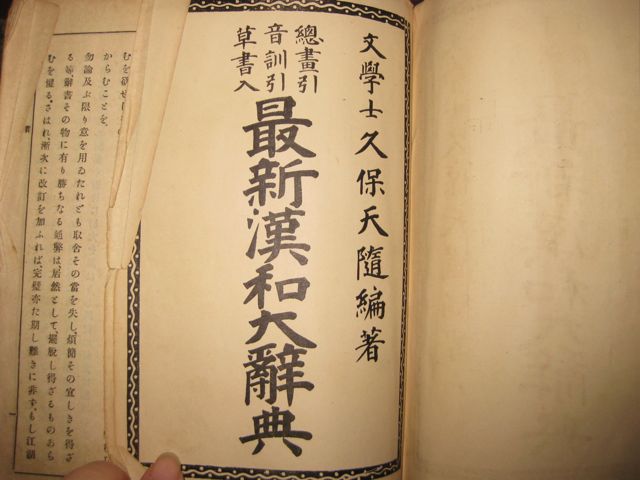 文學士久保天隨編著
總畫引
音訓引
草書入
最新漢和大辭典
むを欲せ
からむことを、
勿論及ぶ限り意を用ゐたれども取舍その當を失し、煩簡その宜しきを得ざ
る等、辭書その物に有り勝ちなる通弊は、居然として、擺脫し得ざるものあら
むを懼る、さはれ、漸次に改訂を加ふれば、完璧亦た期し難きに非ず、もし江湖